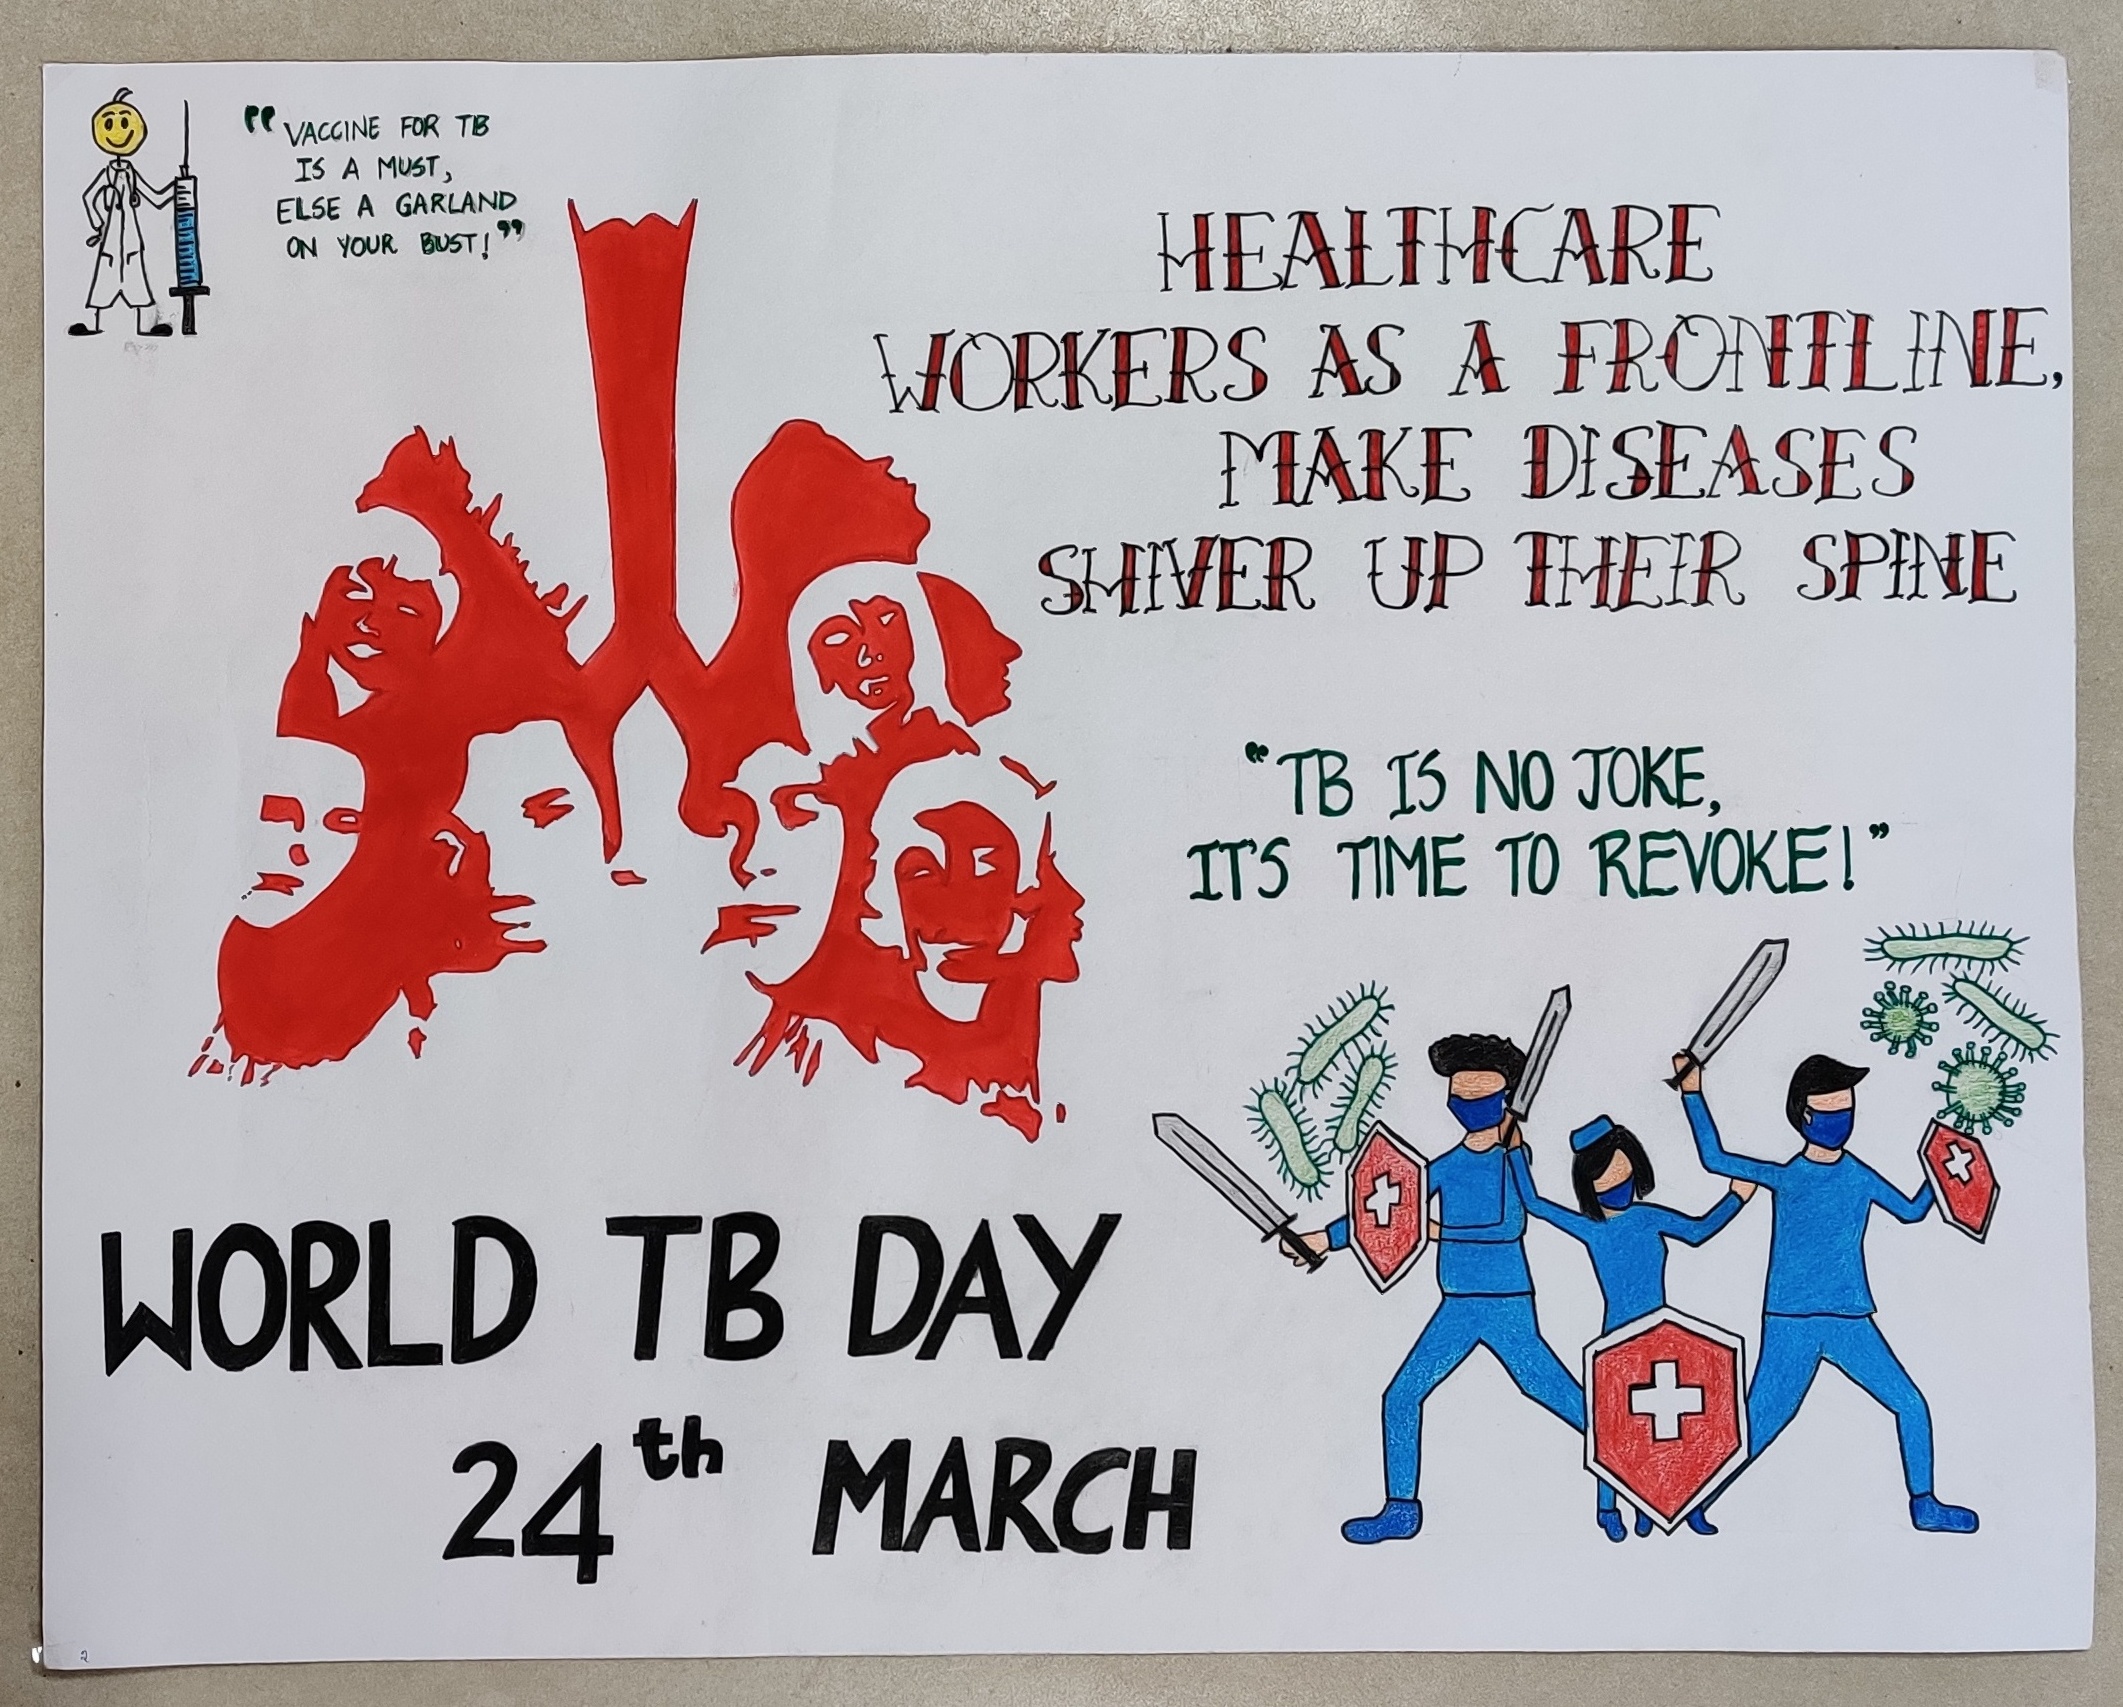 "VACCINE FOR TB
IS A MUST,
ELSE A GARLAND
ON YOUR BUST!"
HEALTHCARE
WORKERS AS A FRONTLINE,
MAKE DISEASES
SHIVER UP THEIR SPINE
"TB IS NO JOKE,
IT'S TIME TO REVOKE!"
WORLD TB DAY
24th MARCH
2